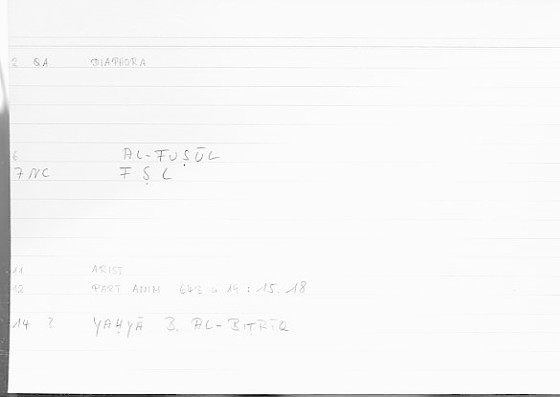 2 QA DIAPHORA
6 AL-FUṢŪL
7 NC F Ṣ L
11 ARIST
12 PART. ANIM. 643 b 14 : 15 18
14 ? YAḤYĀ B. AL-BIṬRĪQ